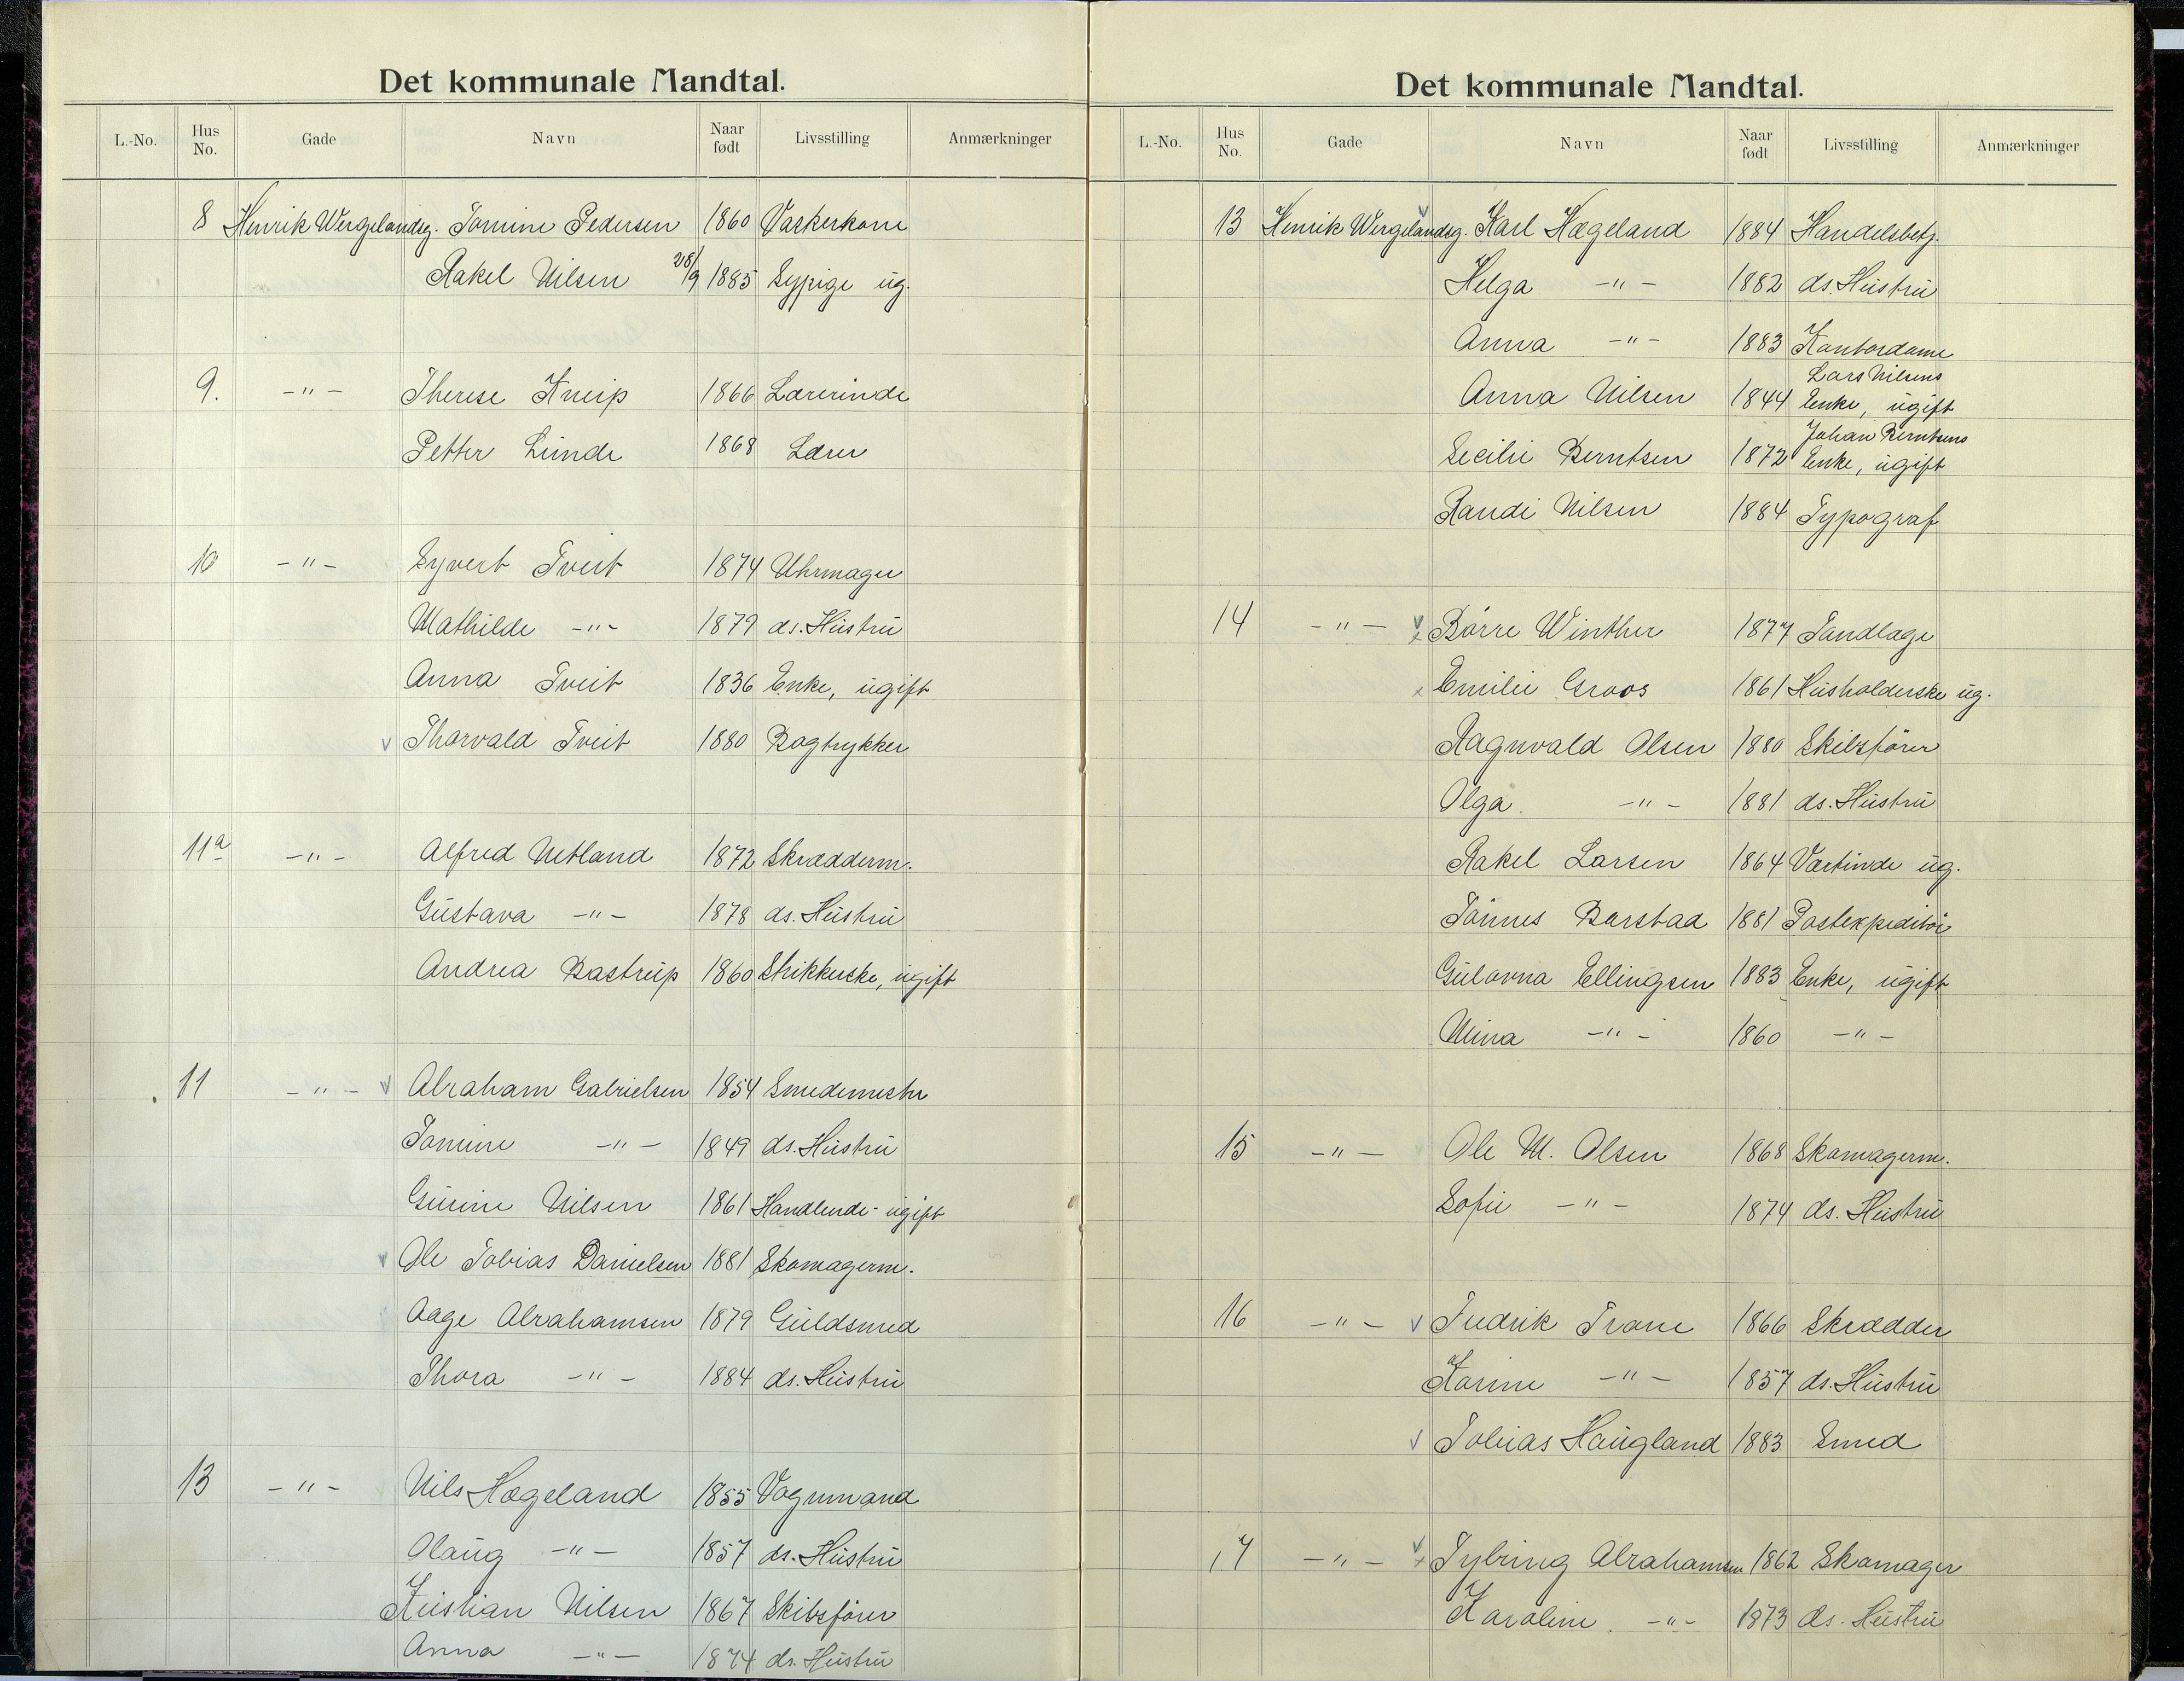 Det kommunale Mandtal.
L.-No. Hus No. Gade Navn Naar født Livsstilling Anmærkninger
8 Henrik Wergelandsg. Tomine Pedersen 1860 Vaskerkone
Rakel Nilsen 28/9 1885 Sypige ug.
9. -"- Therese Kneip 1866 Lærerinde
Petter Lunde 1868 Lærer
10 -"- Syvert Tveit 1874 Uhrmager
Mathilde -"- 1879 ds. Hustru
Anna Tveit 1836 Enke, ugift
v Thorvald Tveit 1880 Bogtrykker
11a -"- Alfred Netland 1872 Skrædderm.
Gustava -"- 1878 ds. Hustru
Andrea Bastrup 1860 Strikkerske, ugift
11 -"- v Abraham Gabrielsen 1854 Smedemester
Tomine -"- 1849 ds. Hustru
Gurine Nilsen 1861 Handlende - ugift
v Ole Tobias Danielsen 1881 Skomagerm.
Aage Abrahamsen 1879 Guldsmed
Thora -"- 1884 ds. Hustru
13 -"- Nils Hægeland 1855 Vognmand
Olaug -"- 1857 ds. Hustru
Kristian Nilsen 1867 Skibsfører
Anna -"- 1874 ds. Hustru
Det kommunale Mandtal.
L.-No. Hus No. Gade Navn Naar født Livsstilling Anmærkninger
13 Henrik Wergelandsg. v Karl Hægeland 1884 Handelsbetj.
Helga -"- 1882 ds. Hustru
Anna -"- 1883 Kontordame
Lars Nilsens
Anna Nilsen 1844 Enke, ugift
Johan Berntsens
Secilie Berntsen 1872 Enke, ugift
Randi Nilsen 1884 Typograf
14 -"- v x Børre Winther 1877 Tandlæge
x Emilie Groos 1861 Husholderske ug.
Ragnvald Olsen 1880 Skibsfører
Olga -"- 1881 ds. Hustru
Rakel Larsen 1864 Værtinde ug.
Tønnes Barstad 1881 Postexpeditør
Gulovna Ellingsen 1883 Enke, ugift
Mina -"- 1860 -"-
15 -"- Ole M. Olsen 1868 Skomagerm.
Sofie -"- 1874 ds. Hustru
16 -"- v Fredrik Trane 1866 Skrædder
Karine -"- 1857 ds. Hustru
v Tobias Haugland 1883 Smed
17 -"- v x Tybring Abrahamsen 1862 Skomager
Karoline -"- 1873 ds. Hustru